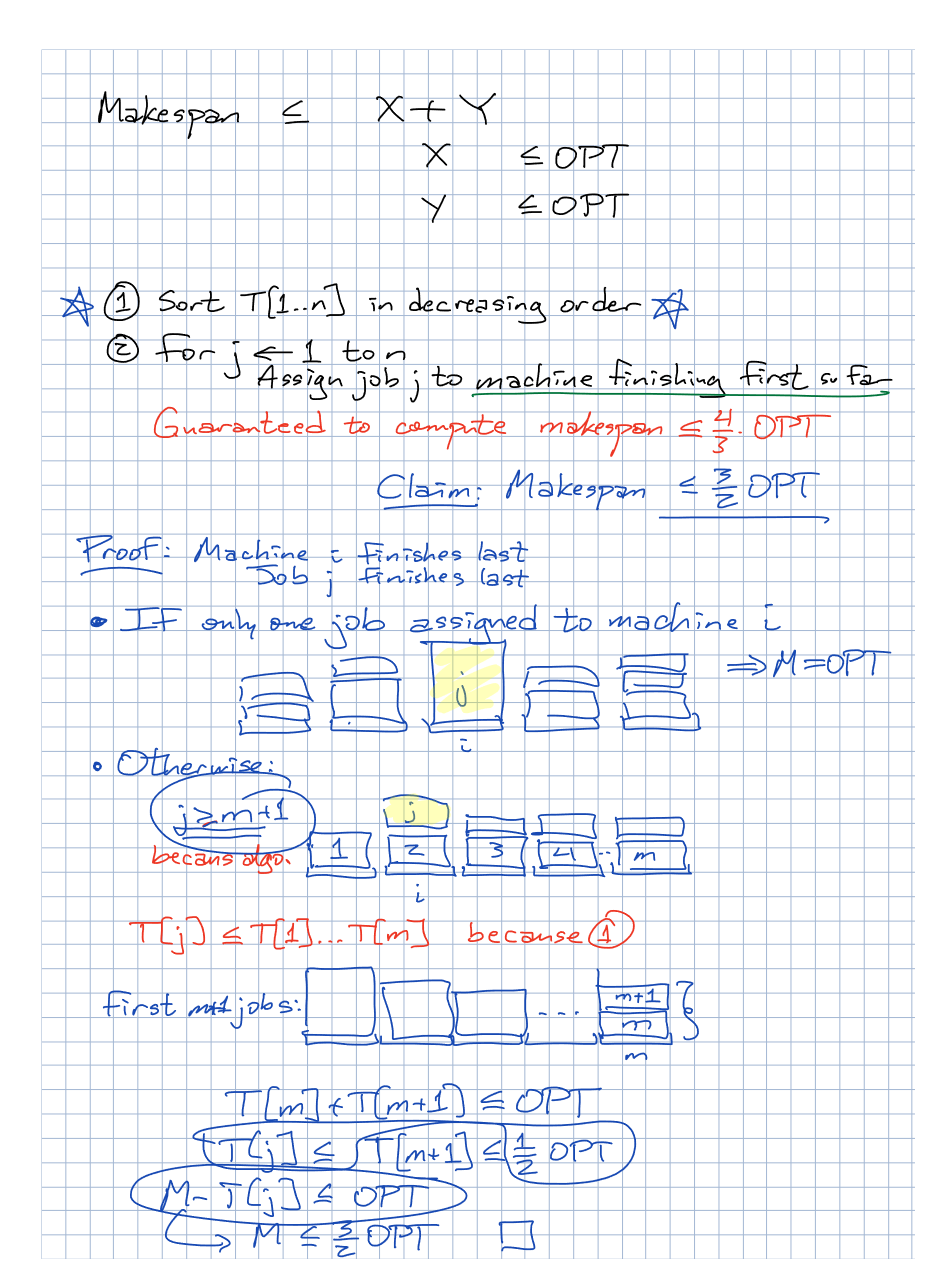 Makespan ≤ X + Y
X ≤ OPT
Y ≤ OPT
① Sort T[1..n] in decreasing order
② For j ← 1 to n
Assign job j to machine finishing first so far
Guaranteed to compute makespan ≤ 4/3 · OPT
Claim: Makespan ≤ 3/2 OPT
Proof: Machine i finishes last
Job j finishes last
• IF only one job assigned to machine i
⇒ M = OPT
j
i
• Otherwise:
j ≥ m+1
becaus algo.
j
1 2 3 4 .. m
i
T[j] ≤ T[1]...T[m] because ①
first m+1 jobs:
... m+1
m
m
T[m] + T[m+1] ≤ OPT
T[j] ≤ T[m+1] ≤ 1/2 OPT
M - T[j] ≤ OPT
→ M ≤ 3/2 OPT □